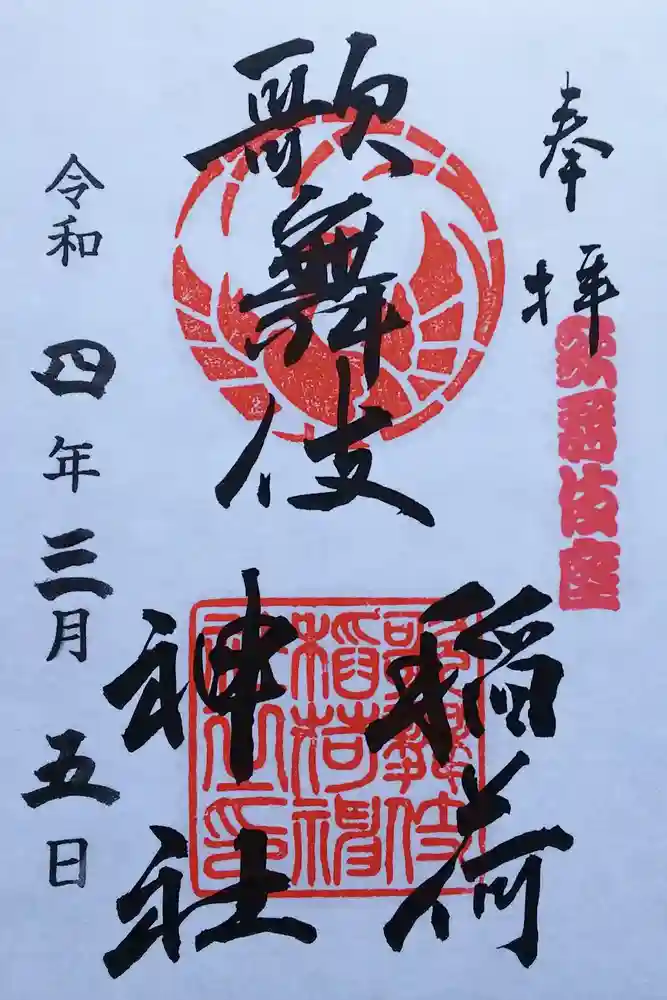 奉拝
歌舞伎座
歌舞伎
稲荷
神社
歌舞伎
稲荷神
社之印
令和四年三月五日